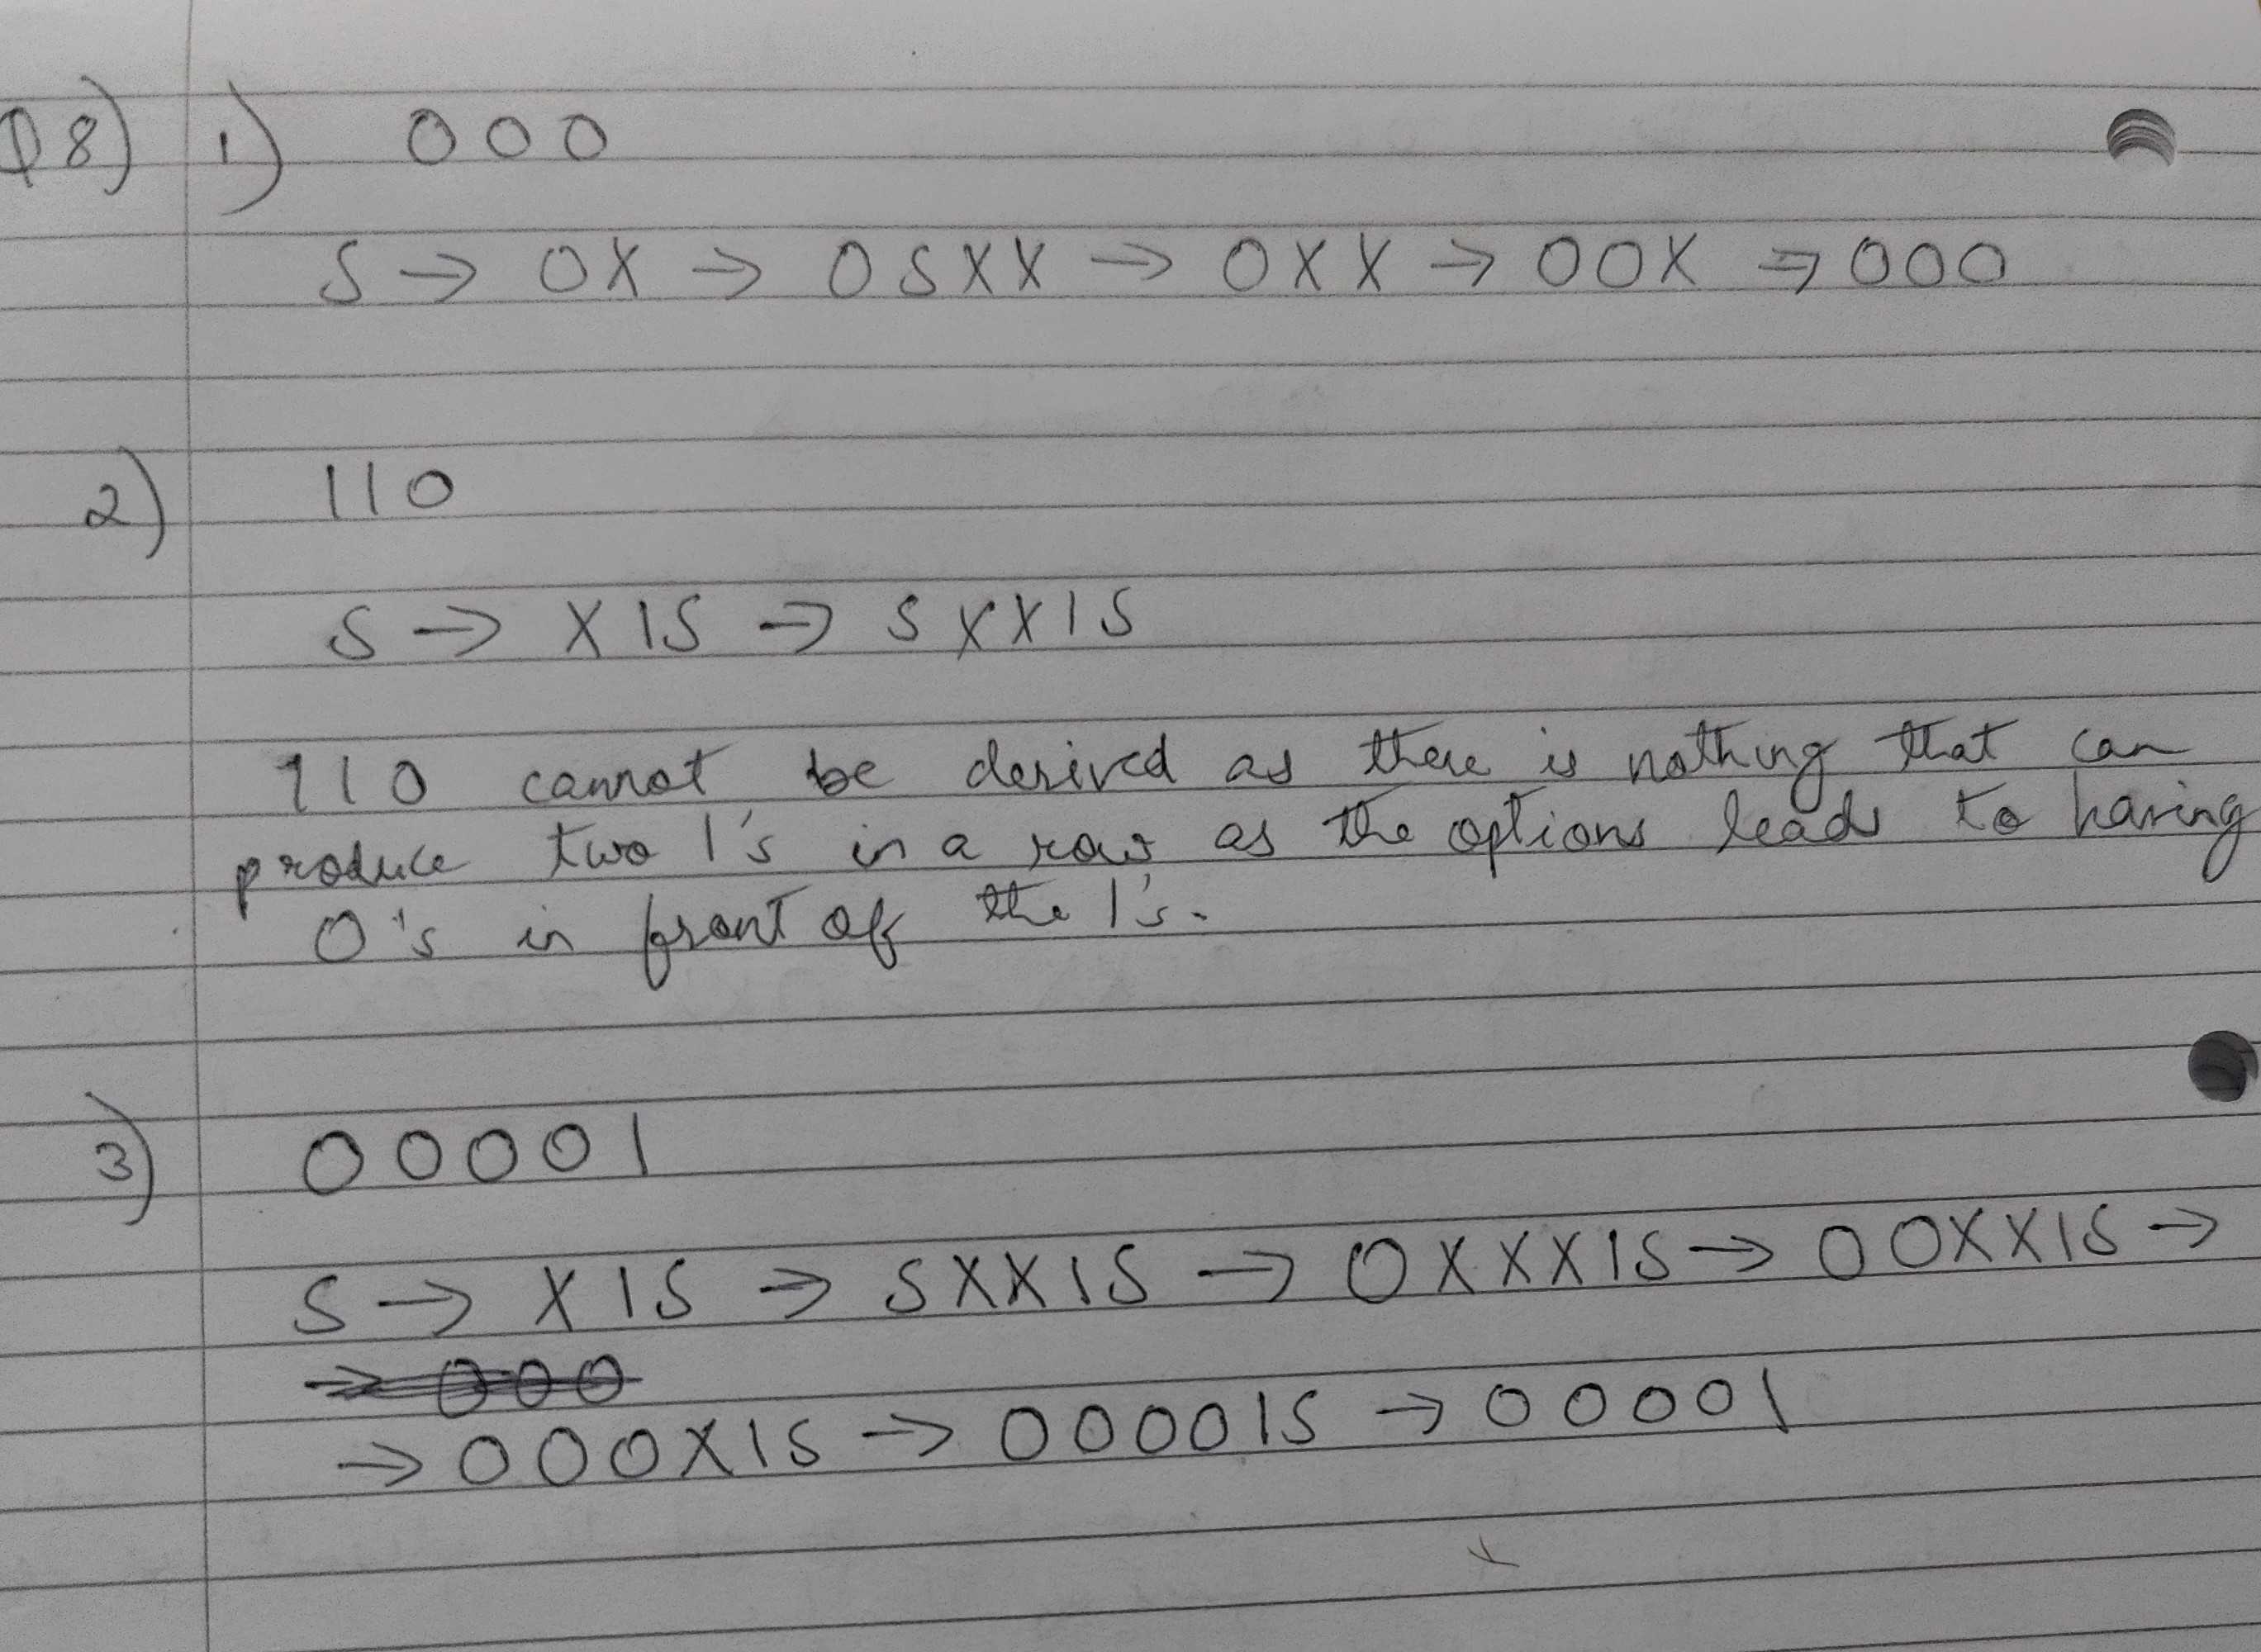 Q8) 1) 000
S → 0X → 0SXX → 0XX → 00X → 000
2) 110
S → X1S → SXX1S
110 cannot be derived as there is nothing that can
produce two 1's in a row as the options leads to having
0's in front of the 1's.
3) 00001
S → X1S → SXX1S → 0XXX1S → 00XX1S →
→ 000
→ 000X1S → 00001S → 00001